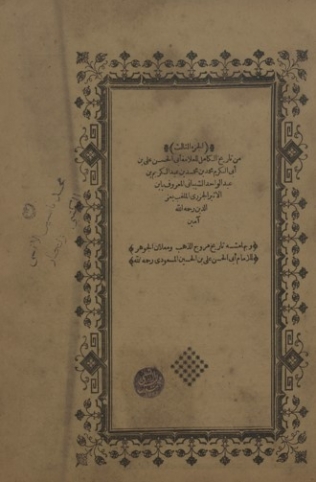 ﴿الجزء الثالث﴾
من تاريخ الكامل للعلامة أبى الحسن على بن
أبى الكرم محمد بن محمد بن عبد الكريم بن
عبد الواحد الشيبانى المعروف بابن
الاثير الجزرى الملقب بعز
الدين رحمه الله
آمين
﴿وبهامشه تاريخ مروج الذهب ومعادن الجوهر﴾
﴿للامام أبى الحسن على بن الحسين المسعودى رحمه الله﴾